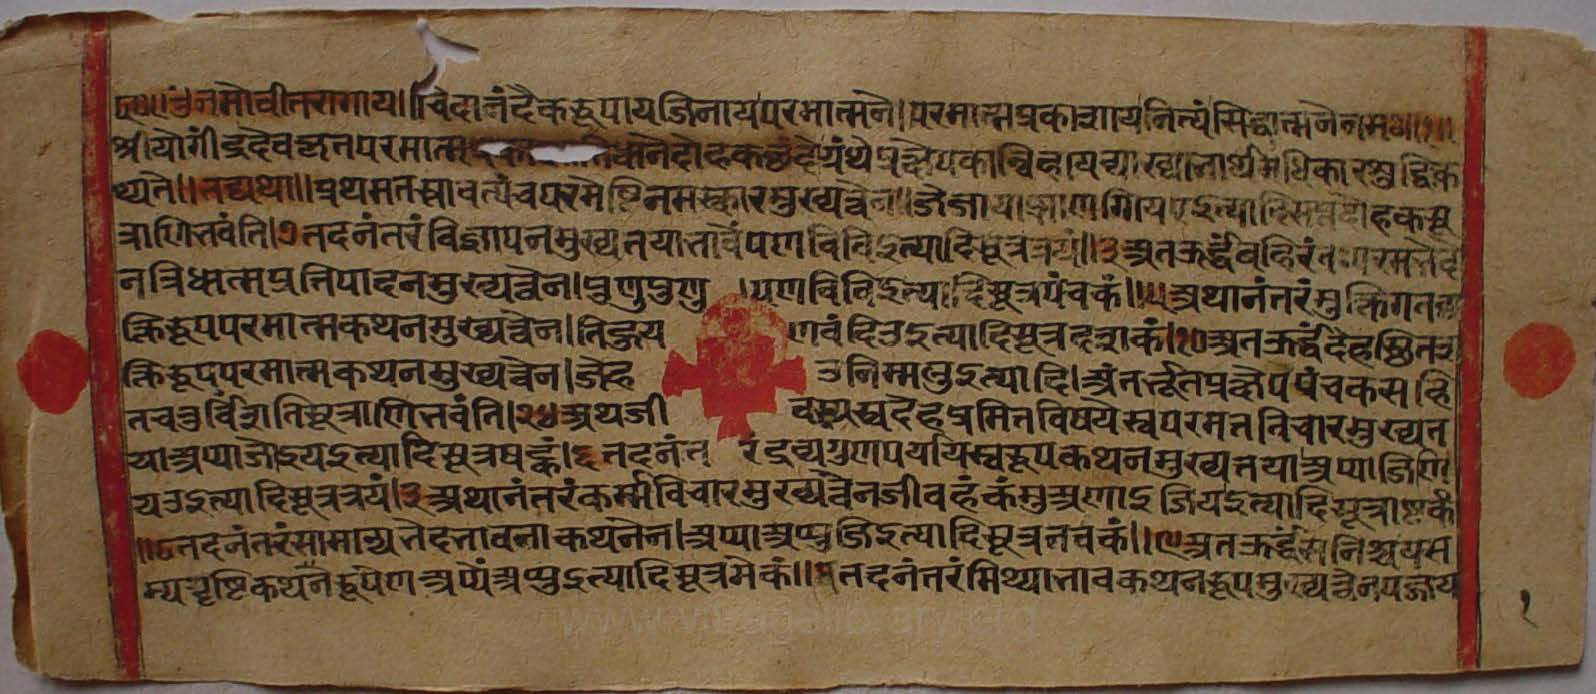 ॥ॐ नमो वीतरागाय॥ चिदानंदैकरूपाय जिनाय परमात्मने। परमात्मप्रकाशाय नित्यं सिद्धात्मने नमः॥१॥
श्रीयोगींद्रदेवकृतपरमात्म धाने दोहकछंदोग्रंथे प्रक्षेपकान् विहाय व्याख्यानार्थमधिकारशुद्धिः क
थ्यते॥ तद्यथा॥ प्रथमतस्तावत्पंचपरमेष्टिनमस्कारमुख्यत्वेन॥ जे जाया झाणग्गियए इत्यादि सप्त दोहकसू
त्राणि भवंति।७ तदनंतरं विज्ञापनमुख्यतया भावं पणविवि इत्यादिसूत्रत्रयं॥३ अत ऊर्द्ध्वं बहिरंतःपरमभेदे
न त्रिधात्मप्रतिपादनमुख्यत्वेन। पुणु पुणु पणविवि इत्यादिसूत्रपंचकं॥५ अथानंतरं मुक्तिगतव्य
क्तिरूपपरमात्मकथनमुख्यत्वेन। तिहुयण वंदिउ इत्यादिसूत्रदशकं।१० अत ऊर्द्ध्वं देहस्थितश
क्तिरूपपरमात्मकथनमुख्यत्वेन। जेहउ निम्मलु इत्यादि। अंतर्भूतप्रक्षेपपंचकसहि
तचतुर्विंशतिसूत्राणि भवंति।२४ अथ जीवस्य स्वदेहप्रमितविषये स्वपरमतविचारमुख्यत
या अप्पा जोइय इत्यादिसूत्रषट्कं।६ तदनंतरं द्रव्यगुणपर्यायस्वरूपकथनमुख्यतया अप्पा जणि
यउ इत्यादिसूत्रत्रयं।३ अथानंतरं कर्म्मविचारमुख्यत्वेन जीवहं कंमु अणाइ जिय इत्यादिसूत्राष्टकं
॥८ तदनंतरं सामान्यभेदभावनाकथनेन। अप्पा अप्पु जि इत्यादिसूत्रनवकं॥९ अत ऊर्द्ध्वं निश्चयस
म्यग्दृष्टिकथनरूपेण अप्पें अप्पु इत्यादिसूत्रमेकं॥१ तदनंतरं मिथ्याभावकथनरूपमुख्यत्वेन पज्जय
१